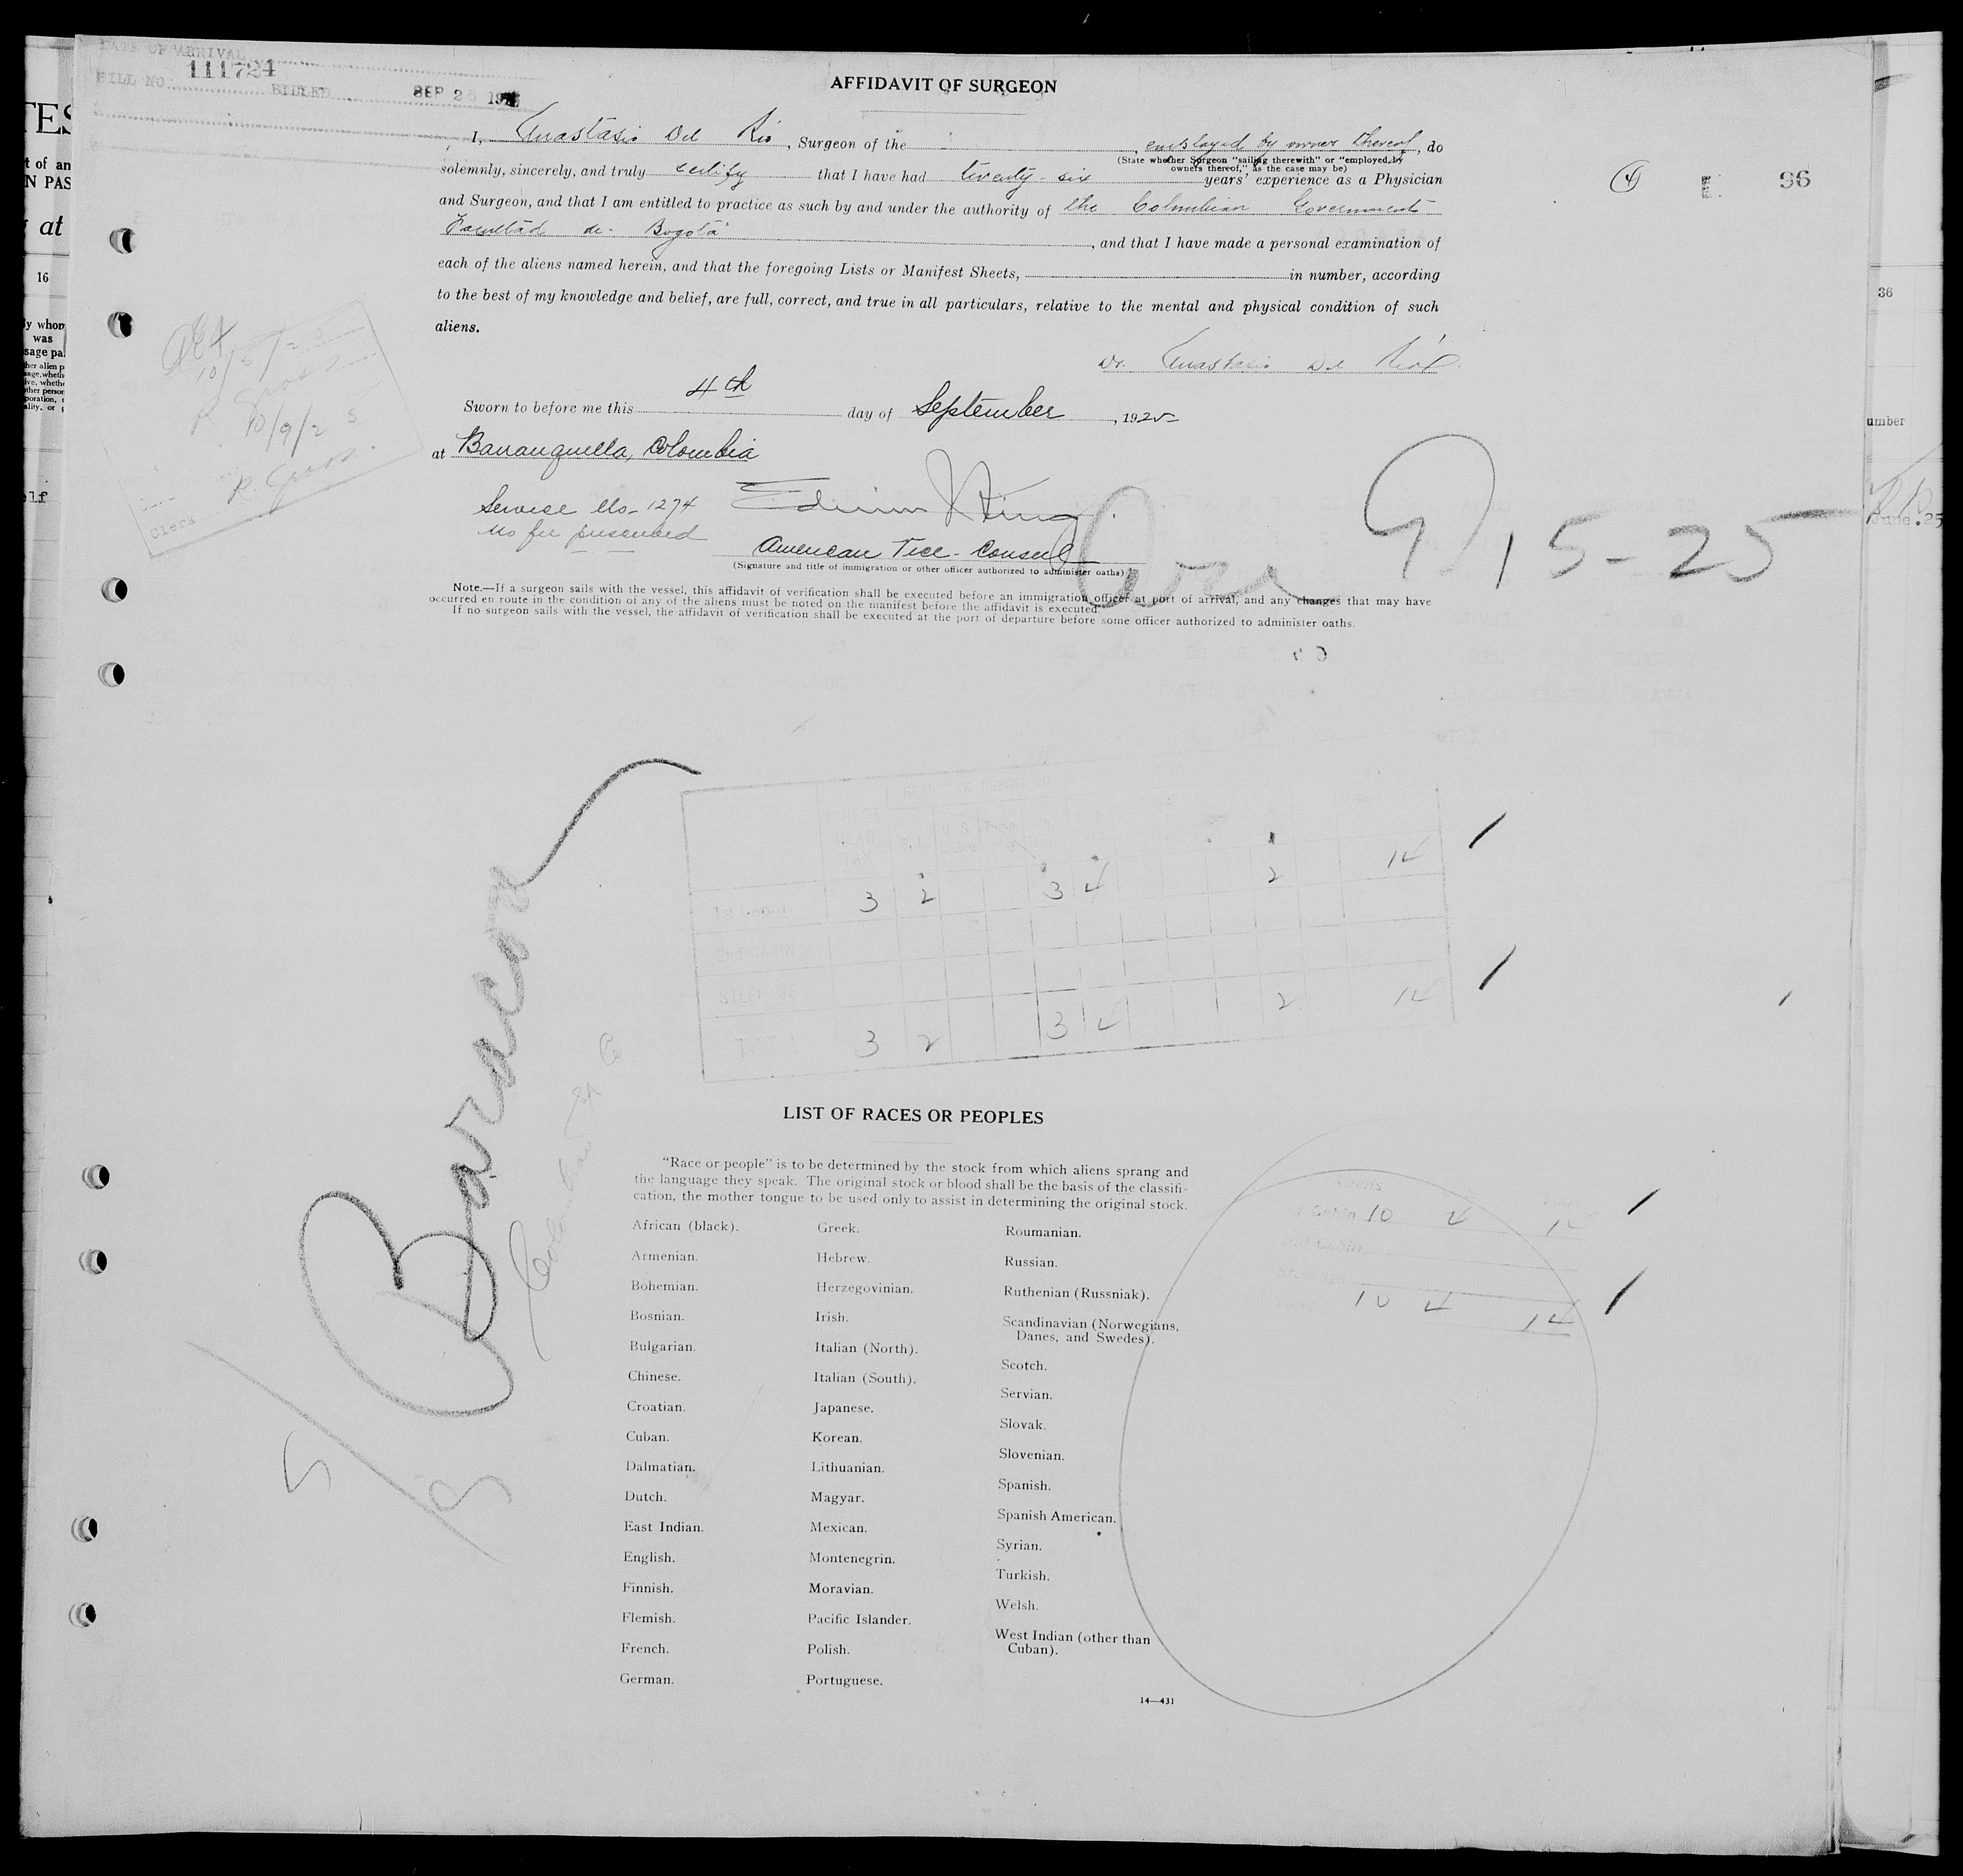 DATE OF ARRIVAL
BILL NO. 111724 BILLED SEP 26 19
AFFIDAVIT OF SURGEON
I, Anastasio Del Rio, Surgeon of the , employed by owner thereof, do
(State whether Surgeon "sailing therewith" or "employed by
owners thereof," as the case may be)
solemnly, sincerely, and truly certify that I have had twenty-six years' experience as a Physician
4 E. 96
and Surgeon, and that I am entitled to practice as such by and under the authority of the Colombian Government
Facultad de Bogotá , and that I have made a personal examination of
each of the aliens named herein, and that the foregoing Lists or Manifest Sheets, in number, according
to the best of my knowledge and belief, are full, correct, and true in all particulars, relative to the mental and physical condition of such
aliens.
Dr. Anastasio Del Rio
Sworn to before me this 4th day of September, 1925
at Barranquilla, Colombia
Service No. 1274
No fee prescribed
Edwin King
American Vice-Consul
(Signature and title of immigration or other officer authorized to administer oaths)
10/5/25
R. Gross
10/9/25
R. Gross
Clerk
15-25
Note.—If a surgeon sails with the vessel, this affidavit of verification shall be executed before an immigration officer at port of arrival, and any changes that may have
occurred en route in the condition of any of the aliens must be noted on the manifest before the affidavit is executed.
If no surgeon sails with the vessel, the affidavit of verification shall be executed at the port of departure before some officer authorized to administer oaths.
HEAD TAX
TAX
1st Cabin 3 2 3 4 2 14
2nd CABIN
STEERAGE
TOTAL 3 2 3 4 2 14
Baracoa
LIST OF RACES OR PEOPLES
"Race or people" is to be determined by the stock from which aliens sprang and
the language they speak. The original stock or blood shall be the basis of the classifi-
cation, the mother tongue to be used only to assist in determining the original stock.
African (black).
Armenian.
Bohemian.
Bosnian.
Bulgarian.
Chinese.
Croatian.
Cuban.
Dalmatian.
Dutch.
East Indian.
English.
Finnish.
Flemish.
French.
German.
Greek.
Hebrew.
Herzegovinian.
Irish.
Italian (North).
Italian (South).
Japanese.
Korean.
Lithuanian.
Magyar.
Mexican.
Montenegrin.
Moravian.
Pacific Islander.
Polish.
Portuguese.
Roumanian.
Russian.
Ruthenian (Russniak).
Scandinavian (Norwegians,
Danes, and Swedes).
Scotch.
Servian.
Slovak.
Slovenian.
Spanish.
Spanish American.
Syrian.
Turkish.
Welsh.
West Indian (other than
Cuban).
14—431
Aliens
Cabin 10 4 14
2nd Cabin
10 4 14
16
36